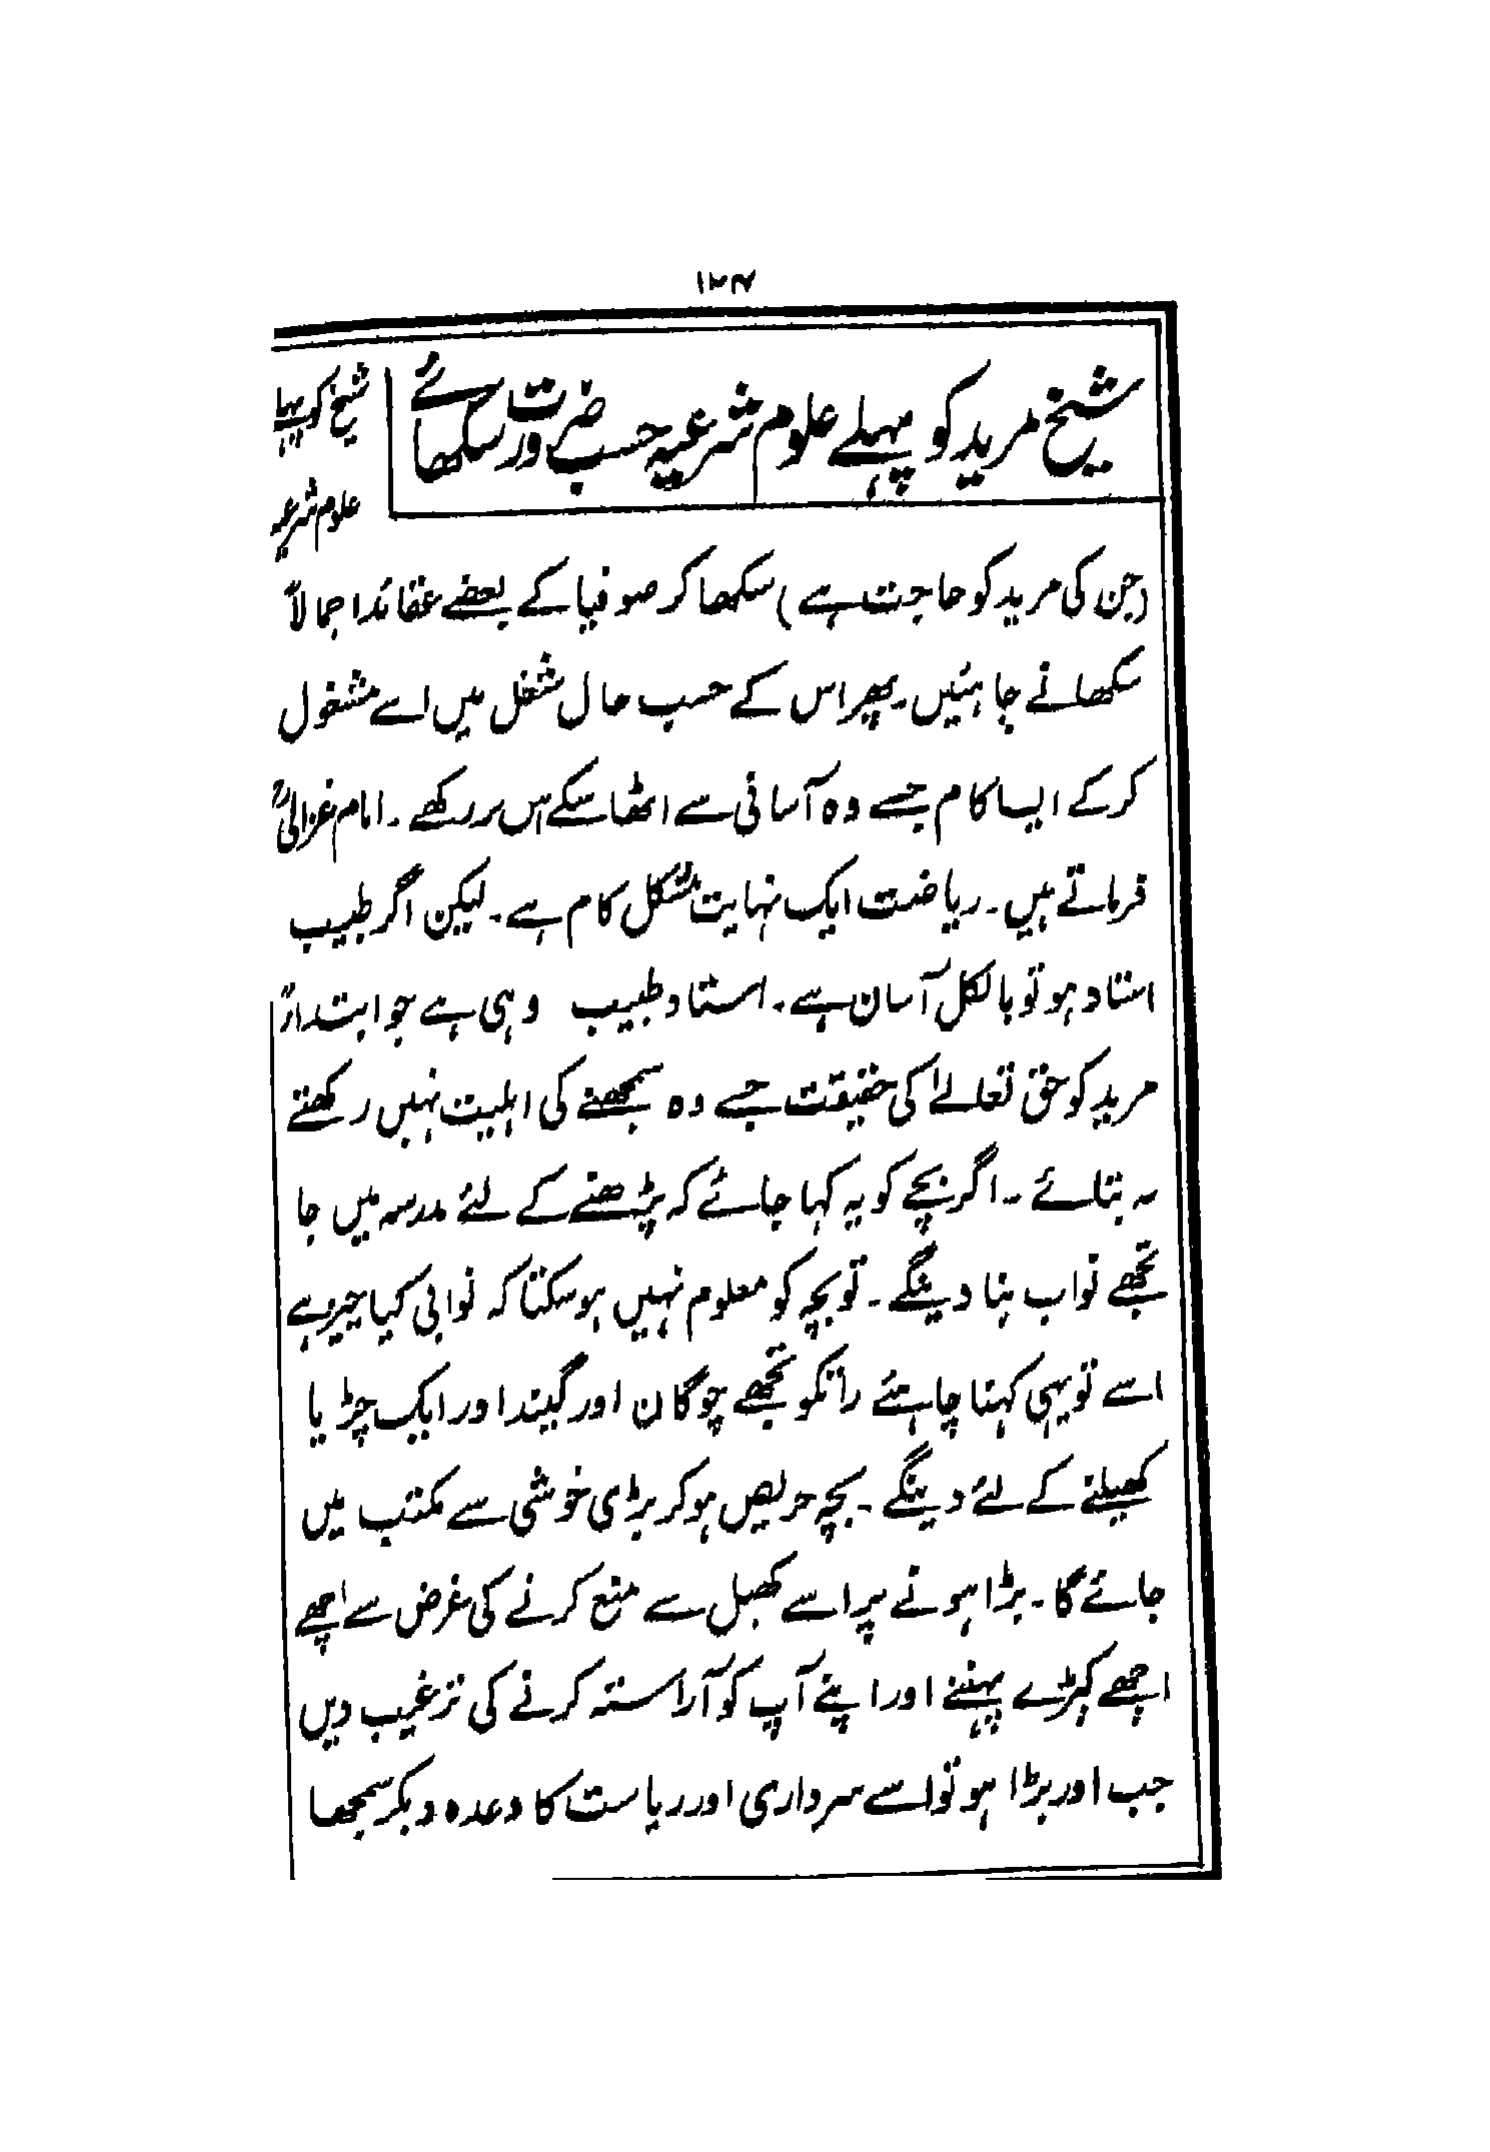 ۱۳۷
شیخ مرید کو پہلے علوم شرعیہ حسب ضرورت سکھائے
شیخ کو پہلے
علوم شرعیہ
(جن کی مرید کو حاجت ہے) سکھا کر صوفیا کے بعضے عقائد اجمالاً
سکھانے چاہئیں۔ پھر اس کے حسب حال شغل میں اسے مشغول
کرکے ایسا کام جسے وہ آسانی سے اٹھا سکے اس پر رکھے۔ امام غزالیؒ
فرماتے ہیں۔ ریاضت ایک نہایت مشکل کام ہے۔ لیکن اگر طبیب
استاد ہو تو بالکل آسان ہے۔ استاد طبیب وہی ہے جو ابتداءً
مرید کو حق تعالےٰ کی حقیقت جسے وہ سمجھنے کی اہلیت نہیں رکھتے
نہ بتائے۔ اگر بچے کو یہ کہا جائے کہ پڑھنے کے لئے مدرسہ میں جا
تجھے نواب بنا دینگے۔ تو بچہ کو معلوم نہیں ہو سکتا کہ نوابی کیا چیز ہے
اسے تو یہی کہنا چاہئے رانکو تجھے چوگان اور گیند اور ایک چڑیا
کھیلنے کے لئے دینگے۔ بچہ حریص ہو کر بڑی خوشی سے مکتب میں
جائے گا۔ بڑا ہونے پر اسے کھیل سے منع کرنے کی غرض سے اچھے
اچھے کپڑے پہننے اور اپنے آپ کو آراستہ کرنے کی ترغیب دیں
جب اور بڑا ہو تو اسے سرداری اور ریاست کا وعدہ دیکر سمجھا